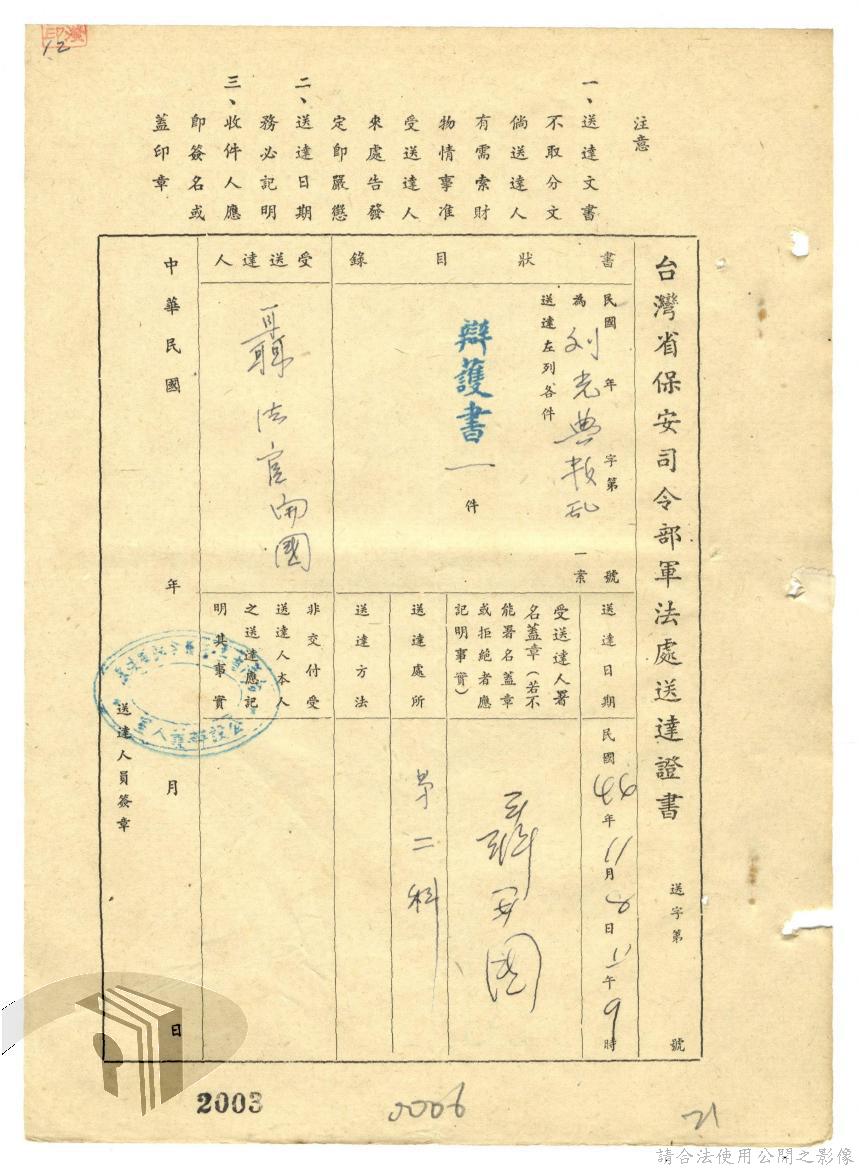 12
注意
一、送達文書
不取分文
倘送達人
有需索財
物情事准
受送達人
來處告發
定即嚴懲
二、送達日期
務必記明
三、收件人應
即簽名或
蓋印章
台灣省保安司令部軍法處送達證書
送字第 號
書狀目錄
民國 年 字第 號
為劉光典叛乱一案
送達左列各件
辯護書一件
受送達人
聶法官開國
送達日期
民國44年11月8日上午9時
受送達人署
名蓋章(若不
能署名蓋章
或拒絕者應
記明事實)
聶开國
送達處所
第二科
送達方法
非交付受
送達人本人
之送達應記
明其事實
中華民國 年 月 日
送達人員簽章
公設辯護人室
2003
0006
21
請合法使用公開之影像